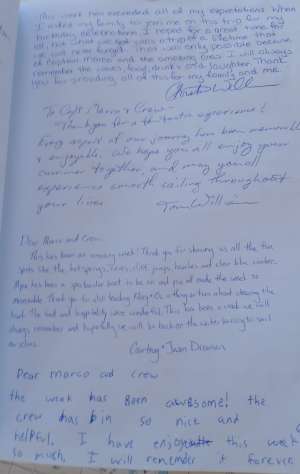 This week has exceeded all of my expectations. When
I asked my family to join me on this trip for my
birthday celebration I hoped for a great time for
all, but what we got was a trip of a lifetime that
we will never forget. That was only possible because
of Captain Marco and the amazing crew. I will always
remember the views, food, drinks and laughter. Thank
you for providing all of this for my family and me.
To Capt. Marco & Crew -
Thank you for a fantastic experience!
Every aspect of our journey has been memorable
& enjoyable. We hope you all enjoy your
summer together, and may you all
experience smooth sailing throughout
your lives.
Dear Marco and Crew,
This has been an amazing week! Thank you for showing us all the fun
spots like the hot springs, caves, cliff jumps, beaches and clear blue water.
has been a spectacular boat to be on and you all made the week so
memorable. Thank you for also leading and the others on their about cleaning the
boat. The food and hospitality were wonderful. This has been a week we will
always remember and hopefully we will be back on the water learning to sail
ourselves.
Courtney + Juan
Dear marco and crew
the week has Been awesome! the
crew has bin so nice and
helpful. I have enjoy this week
so much. I will remember it forever